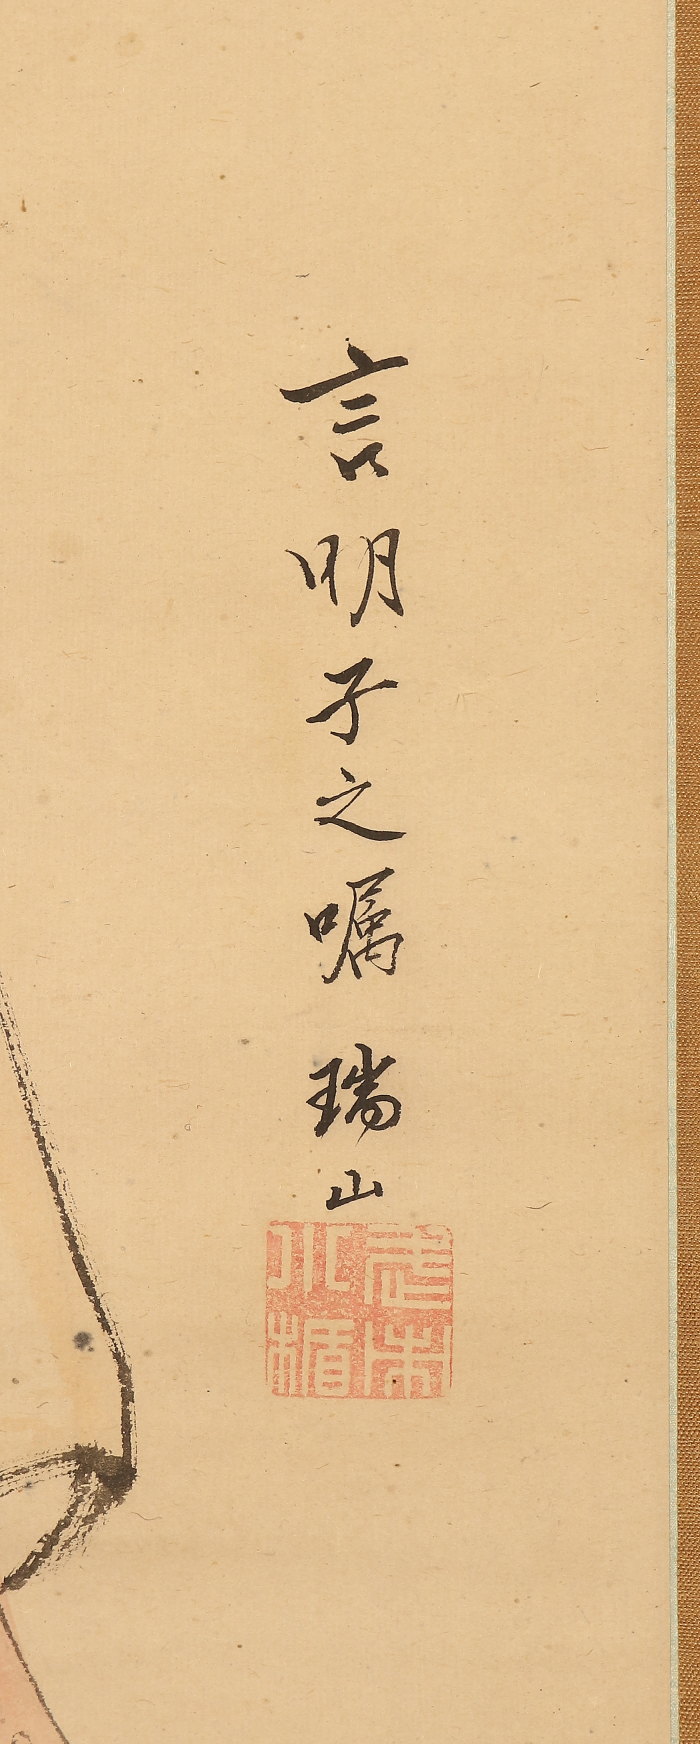 言明子之嘱 瑞山